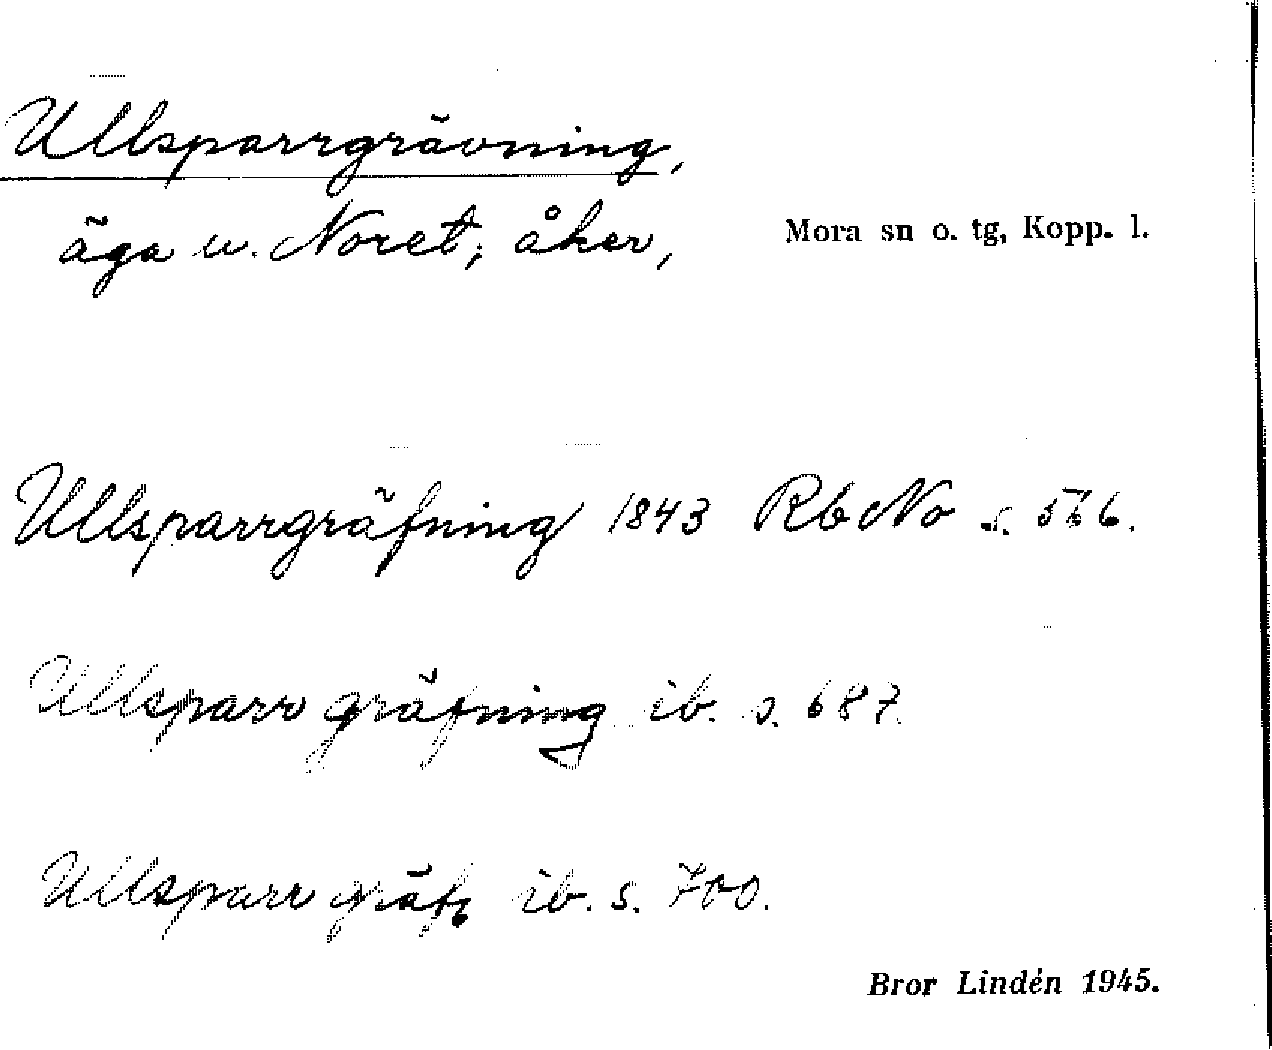 Ullsparrgrävning,
äga u. Noret; åker,
Mora sn o. tg, Kopp. l.
Ullsparrgräfning 1843 RbNo s. 566.
Ullsparr gräfning ib. s. 687.
Ullsparr gräfs ib. s. 700.
Bror Lindén 1945.